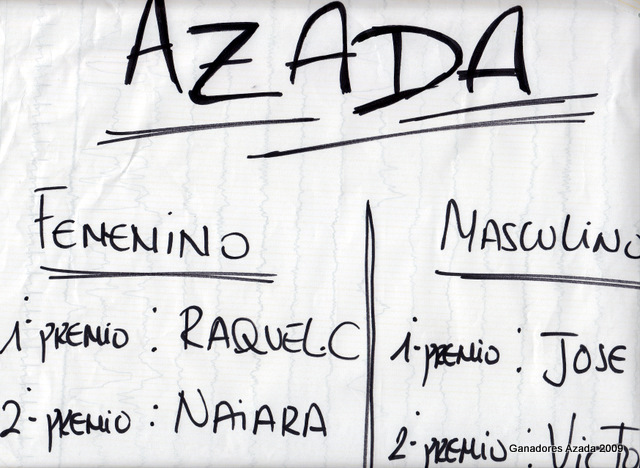 AZADA
FEMENINO
1º PREMIO : RAQUEL C
2º PREMIO : NAiARA
MASCULINO
1º PREMIO : JOSE
2º PREMIO :
Ganadores Azada 2009